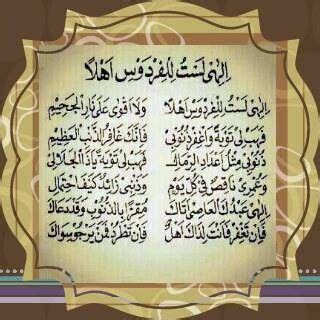 اِلٰهِىْ لَسْتُ لِلْفِرْدَوْسِ اَهْلًا
اِلٰهِىْ لَسْتُ لِلْفِرْدَوْسِ اَهْلًا وَلَا اَقْوَى عَلَى نَارِ الْجَحِيْمِ
فَهَبْ لِىْ تَوْبَةً وَاغْفِرْ ذُنُوْبِىْ فَاِنَّكَ غَافِرُ الذَّنْبِ الْعَظِيْمِ
ذُنُوْبِىْ مِثْلُ اَعْدَادِ الرِّمَالِ فَهَبْ لِىْ تَوْبَةً يَاذَا الْجَلَالِ
وَعُمْرِىْ نَاقِصٌ فِىْ كُلِّ يَوْمٍ وَذَنْبِىْ زَائِدٌ كَيْفَ احْتِمَالِ
اِلٰهِىْ عَبْدُكَ الْعَاصِىْ اَتَاكَ مُقِرًّا بِالذُّنُوْبِ وَقَدْ دَعَاكَ
فَاِنْ تَغْفِرْ فَاَنْتَ لِذَاكَ اَهْلٌ فَاِنْ تَطْرُدْ فَمَنْ يَرْجُوْ سِوَاكَ